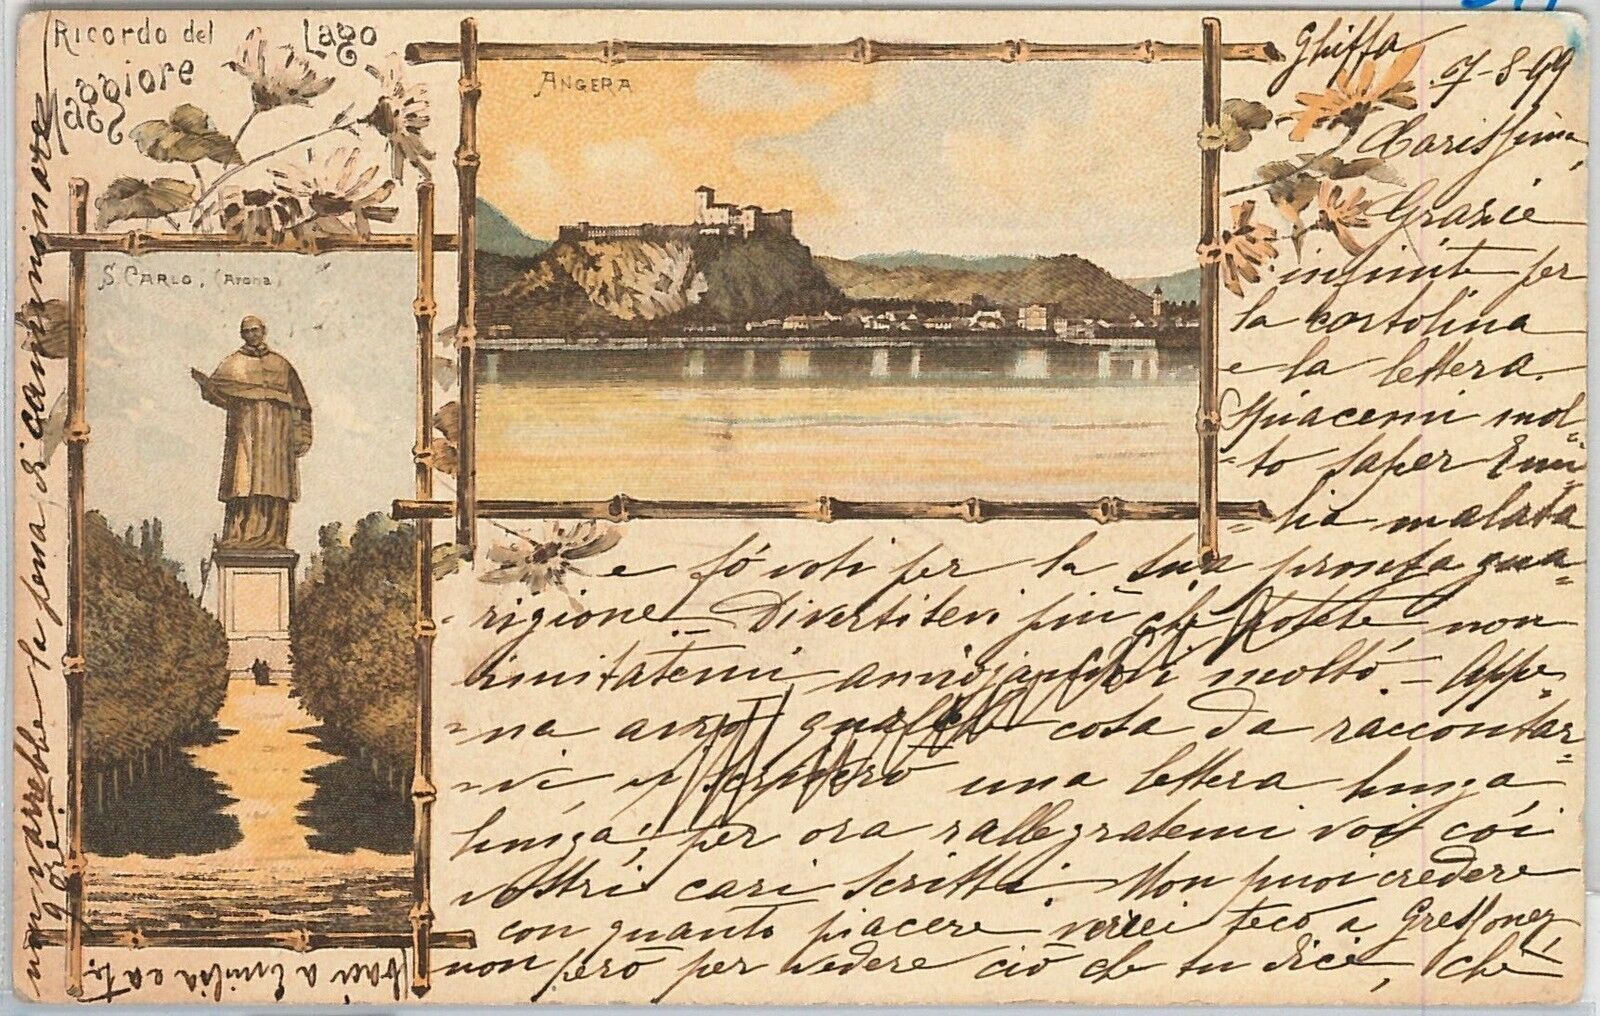 Ricordo del Lago
Maggiore
ANGERA
S. CARLO. (Arona)
Ghiffa
7-8-99
Carissima,
Grazie
infinite per
la cartolina
e la lettera.
Spiacemi mol=
=to saper Emi=
=lia malata
e fò voti per la sua pronta gua=
=rigione. Divertitevi più che potete non
imitatemi annojandovi molto. – Appe=
=na avrò qualche cosa da raccontar=
=vi vi scriverò una lettera lunga
lunga; per ora rallegratemi voi coi
vostri cari scritti. Non puoi credere
con quanto piacere verrei teco a Gressoney
non però per vedere ciò che tu dici, chè
non varrebbe la pena di camminare
9 ore.
Baci a Emilia e a te.